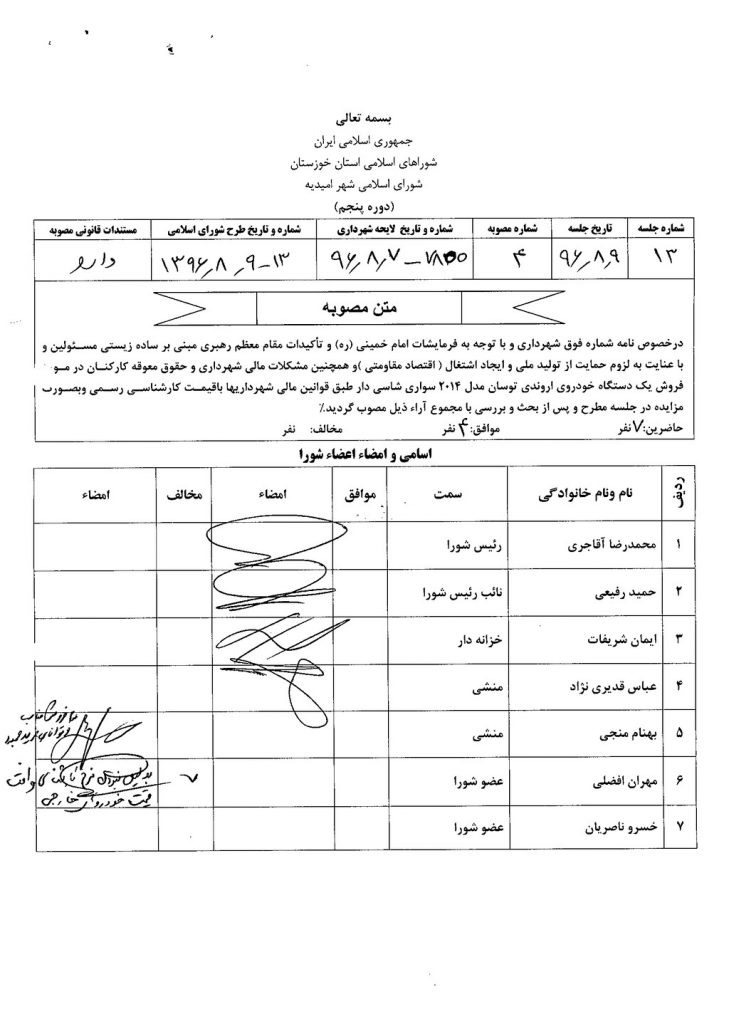 بسمه تعالی
جمهوری اسلامی ایران
شوراهای اسلامی استان خوزستان
شورای اسلامی شهر امیدیه
(دوره پنجم)
شماره جلسه تاریخ جلسه شماره مصوبه شماره و تاریخ لایحه شهرداری شماره و تاریخ طرح شورای اسلامی مستندات قانونی مصوبه
۱۳ ۹۶٫۸٫۹ ۴ ۷۸۵۵ – ۹۶٫۸٫۷ ۱۳ – ۱۳۹۶٫۸٫۹ دارد
متن مصوبه
درخصوص نامه شماره فوق شهرداری و با توجه به فرمایشات امام خمینی (ره) و تأکیدات مقام معظم رهبری مبنی بر ساده زیستی مسئولین و
با عنایت به لزوم حمایت از تولید ملی و ایجاد اشتغال ( اقتصاد مقاومتی )و همچنین مشکلات مالی شهرداری و حقوق معوقه کارکنان در مو
فروش یک دستگاه خودروی اروندی توسان مدل ۲۰۱۴ سواری شاسی دار طبق قوانین مالی شهرداریها باقیمت کارشناسی رسمی وبصورت
مزایده در جلسه مطرح و پس از بحث و بررسی با مجموع آراء ذیل مصوب گردید.٪
حاضرین: ۷ نفر موافق: ۴ نفر مخالف: نفر
اسامی و امضاء اعضاء شورا
ردیف نام ونام خانوادگی سمت موافق امضاء مخالف امضاء
۱ محمدرضا آقاجری رئیس شورا
۲ حمید رفیعی نائب رئیس شورا
۳ ایمان شریفات خزانه دار
۴ عباس قدیری نژاد منشی
۵ بهنام منجی منشی
۶ مهران افضلی عضو شورا
قیمت خودروی خارجی
۷ خسرو ناصریان عضو شورا